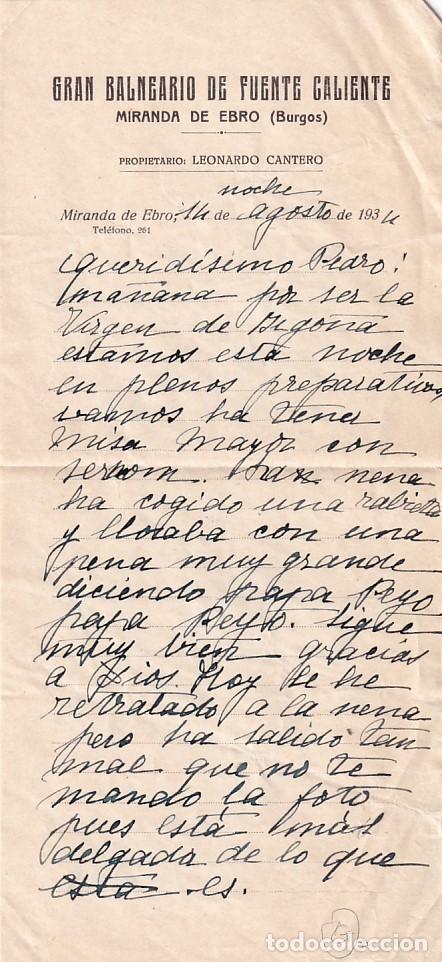 GRAN BALNEARIO DE FUENTE CALIENTE
MIRANDA DE EBRO (Burgos)
PROPIETARIO: LEONARDO CANTERO
noche
Miranda de Ebro, 14 de agosto de 193
Teléfono, 261
Queridísimo Pedro!
mañana por ser la
Virgen de Begoña
estamos esta noche
en plenos preparativos
vamos ha tener
misa mayor con
sermom. La nena
ha cogido una rabieta
y lloraba con una
pena muy grande
diciendo papa Peyo
papa Peyo. Sigue
muy bien gracias
a Dios. Hoy se he
retratado a la nena
pero ha salido tan
mal que no te
mando la foto
pues está más
delgada de lo que
esta es.
todocoleccion.net